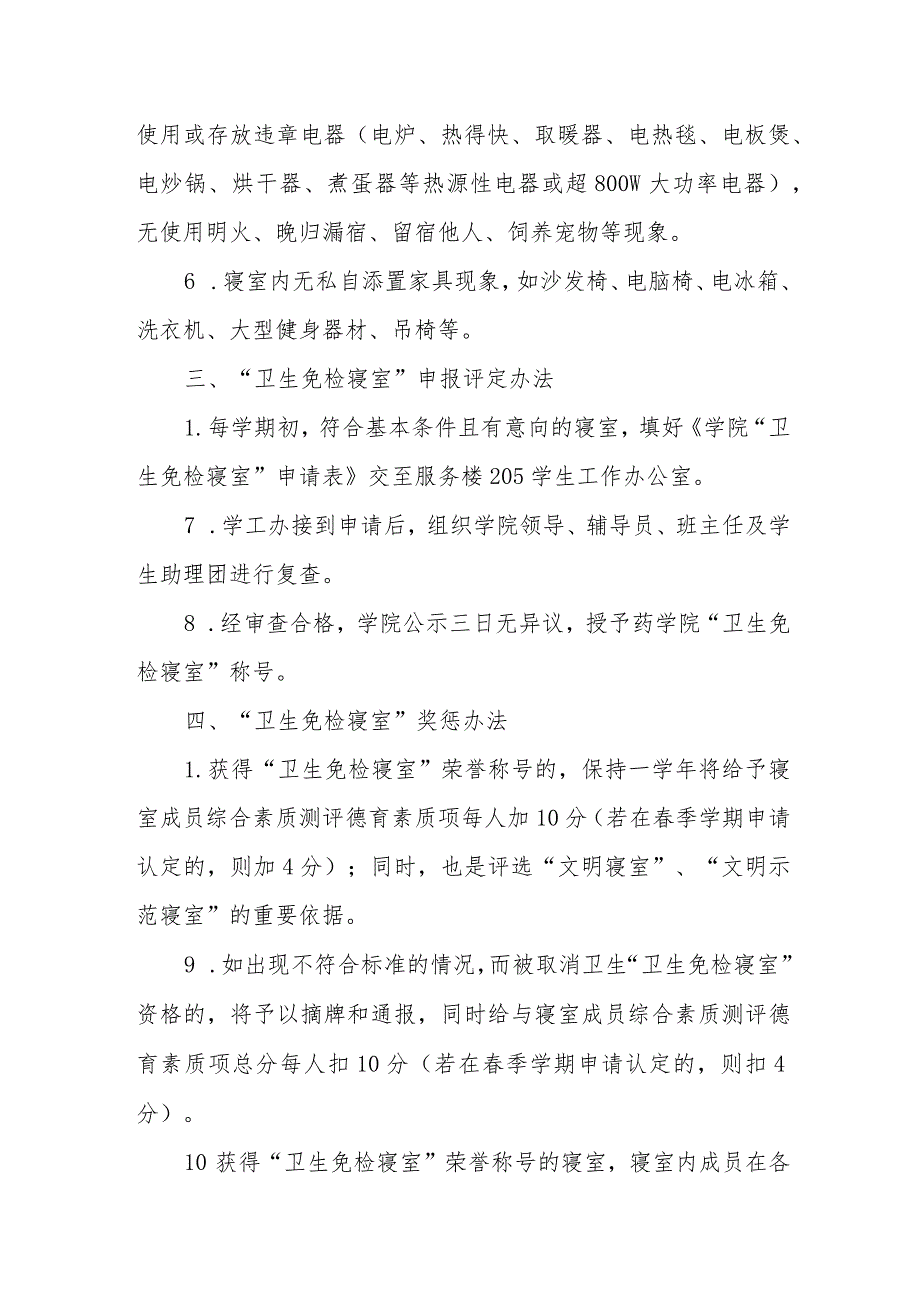 使用或存放违章电器（电炉、热得快、取暖器、电热毯、电板煲、
电炒锅、烘干器、煮蛋器等热源性电器或超 800W 大功率电器），
无使用明火、晚归漏宿、留宿他人、饲养宠物等现象。
6 .寝室内无私自添置家具现象，如沙发椅、电脑椅、电冰箱、
洗衣机、大型健身器材、吊椅等。
三、“卫生免检寝室”申报评定办法
1.每学期初，符合基本条件且有意向的寝室，填好《学院“卫
生免检寝室”申请表》交至服务楼 205 学生工作办公室。
7 .学工办接到申请后，组织学院领导、辅导员、班主任及学
生助理团进行复查。
8 .经审查合格，学院公示三日无异议，授予药学院“卫生免
检寝室”称号。
四、“卫生免检寝室”奖惩办法
1.获得“卫生免检寝室”荣誉称号的，保持一学年将给予寝
室成员综合素质测评德育素质项每人加 10 分（若在春季学期申请
认定的，则加 4 分）；同时，也是评选“文明寝室”、“文明示
范寝室”的重要依据。
9 .如出现不符合标准的情况，而被取消卫生“卫生免检寝室”
资格的，将予以摘牌和通报，同时给与寝室成员综合素质测评德
育素质项总分每人扣 10 分（若在春季学期申请认定的，则扣 4
分）。
10 获得“卫生免检寝室”荣誉称号的寝室，寝室内成员在各